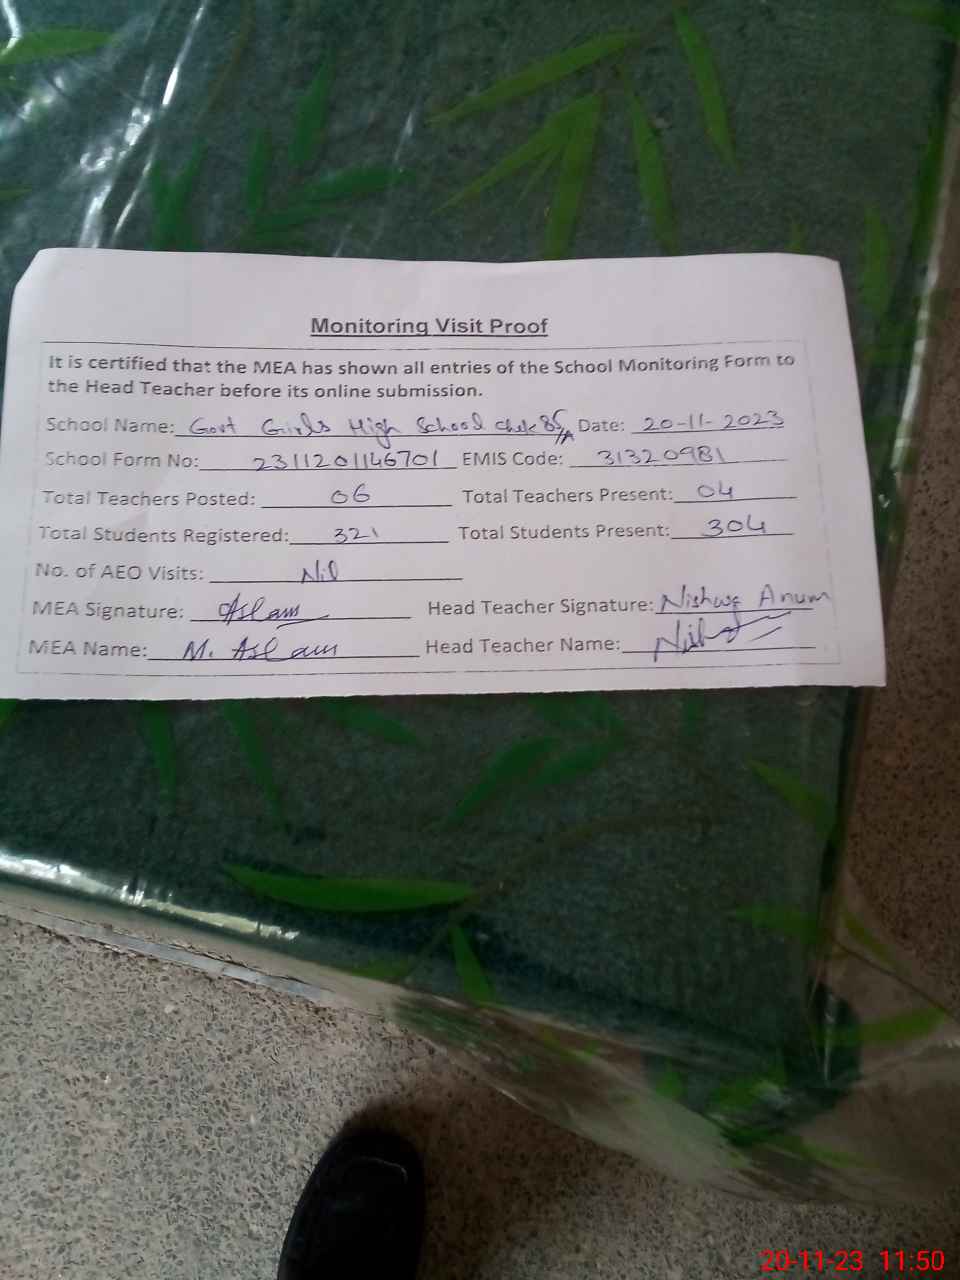 Monitoring Visit Proof
It is certified that the MEA has shown all entries of the School Monitoring Form to
the Head Teacher before its online submission.
School Name: Govt Girls High School Chak 85/A Date: 20-11-2023
School Form No: 2311201146701 EMIS Code: 31320981
Total Teachers Posted: 06 Total Teachers Present: 04
Total Students Registered: 321 Total Students Present: 304
No. of AEO Visits: Nil
MEA Signature: Aslam Head Teacher Signature: Anum
MEA Name: M. Aslam Head Teacher Name:
20-11-23 11:50